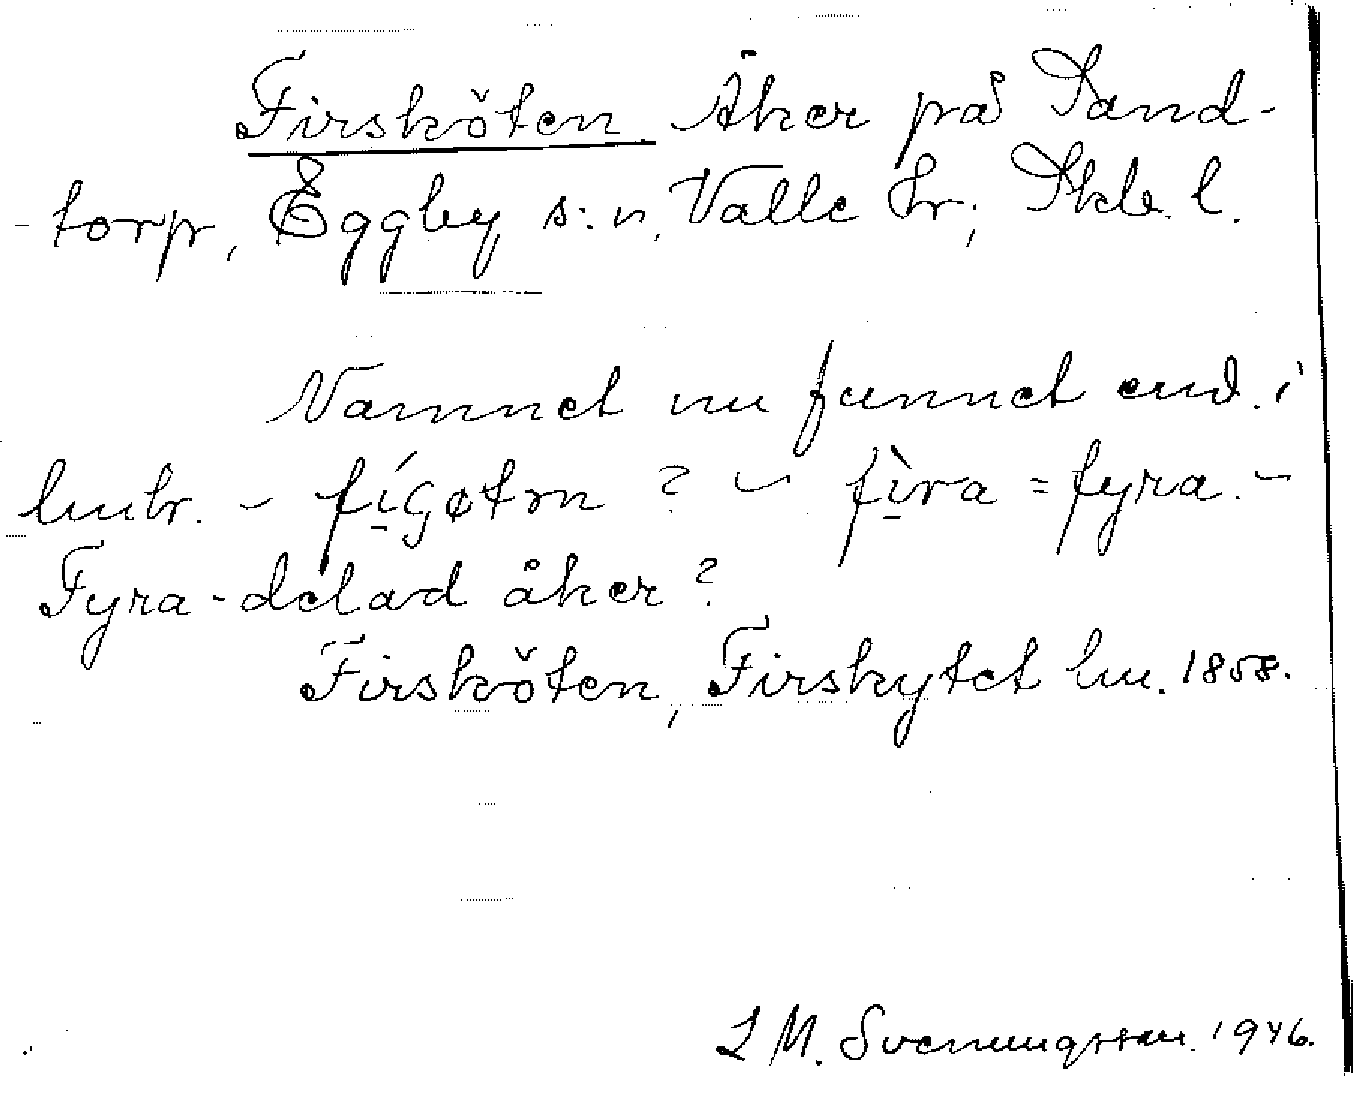 Firsköten Åker på Sand-
torp, Eggby s:n, Valle hr; Skb. l.
Namnet nu funnet end. i
lmtr. – fígøtṇ ? – fìra = fyra. –
Fyra-delad åker ?
Firsköten, Firskytet lm. 1858.
L M. Svenungsson. 1946.